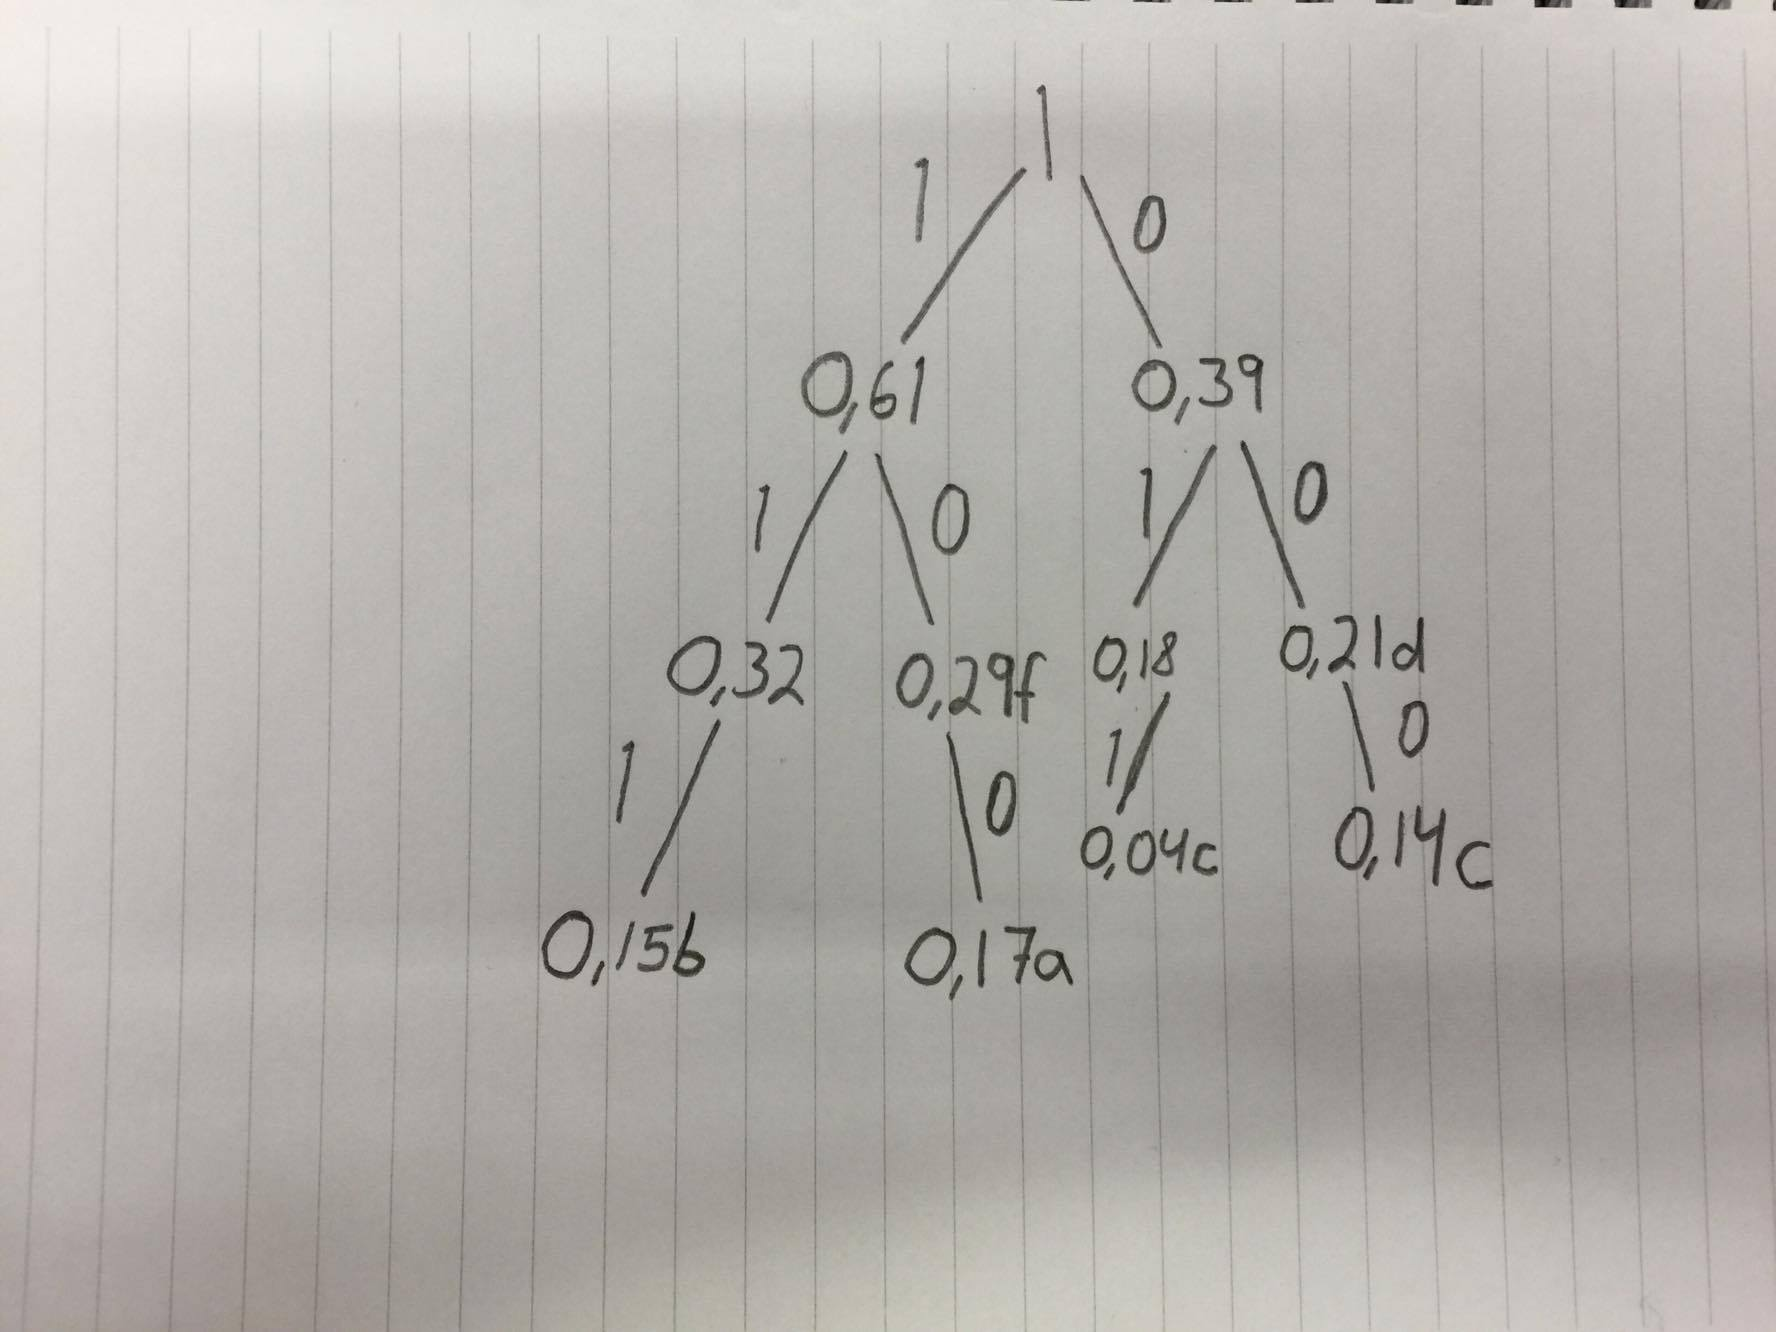 1
1 0
0,61 0,39
1 0 1 0
0,32 0,29f 0,18 0,21d
1 0 1 0
0,15b 0,17a 0,04c 0,14c